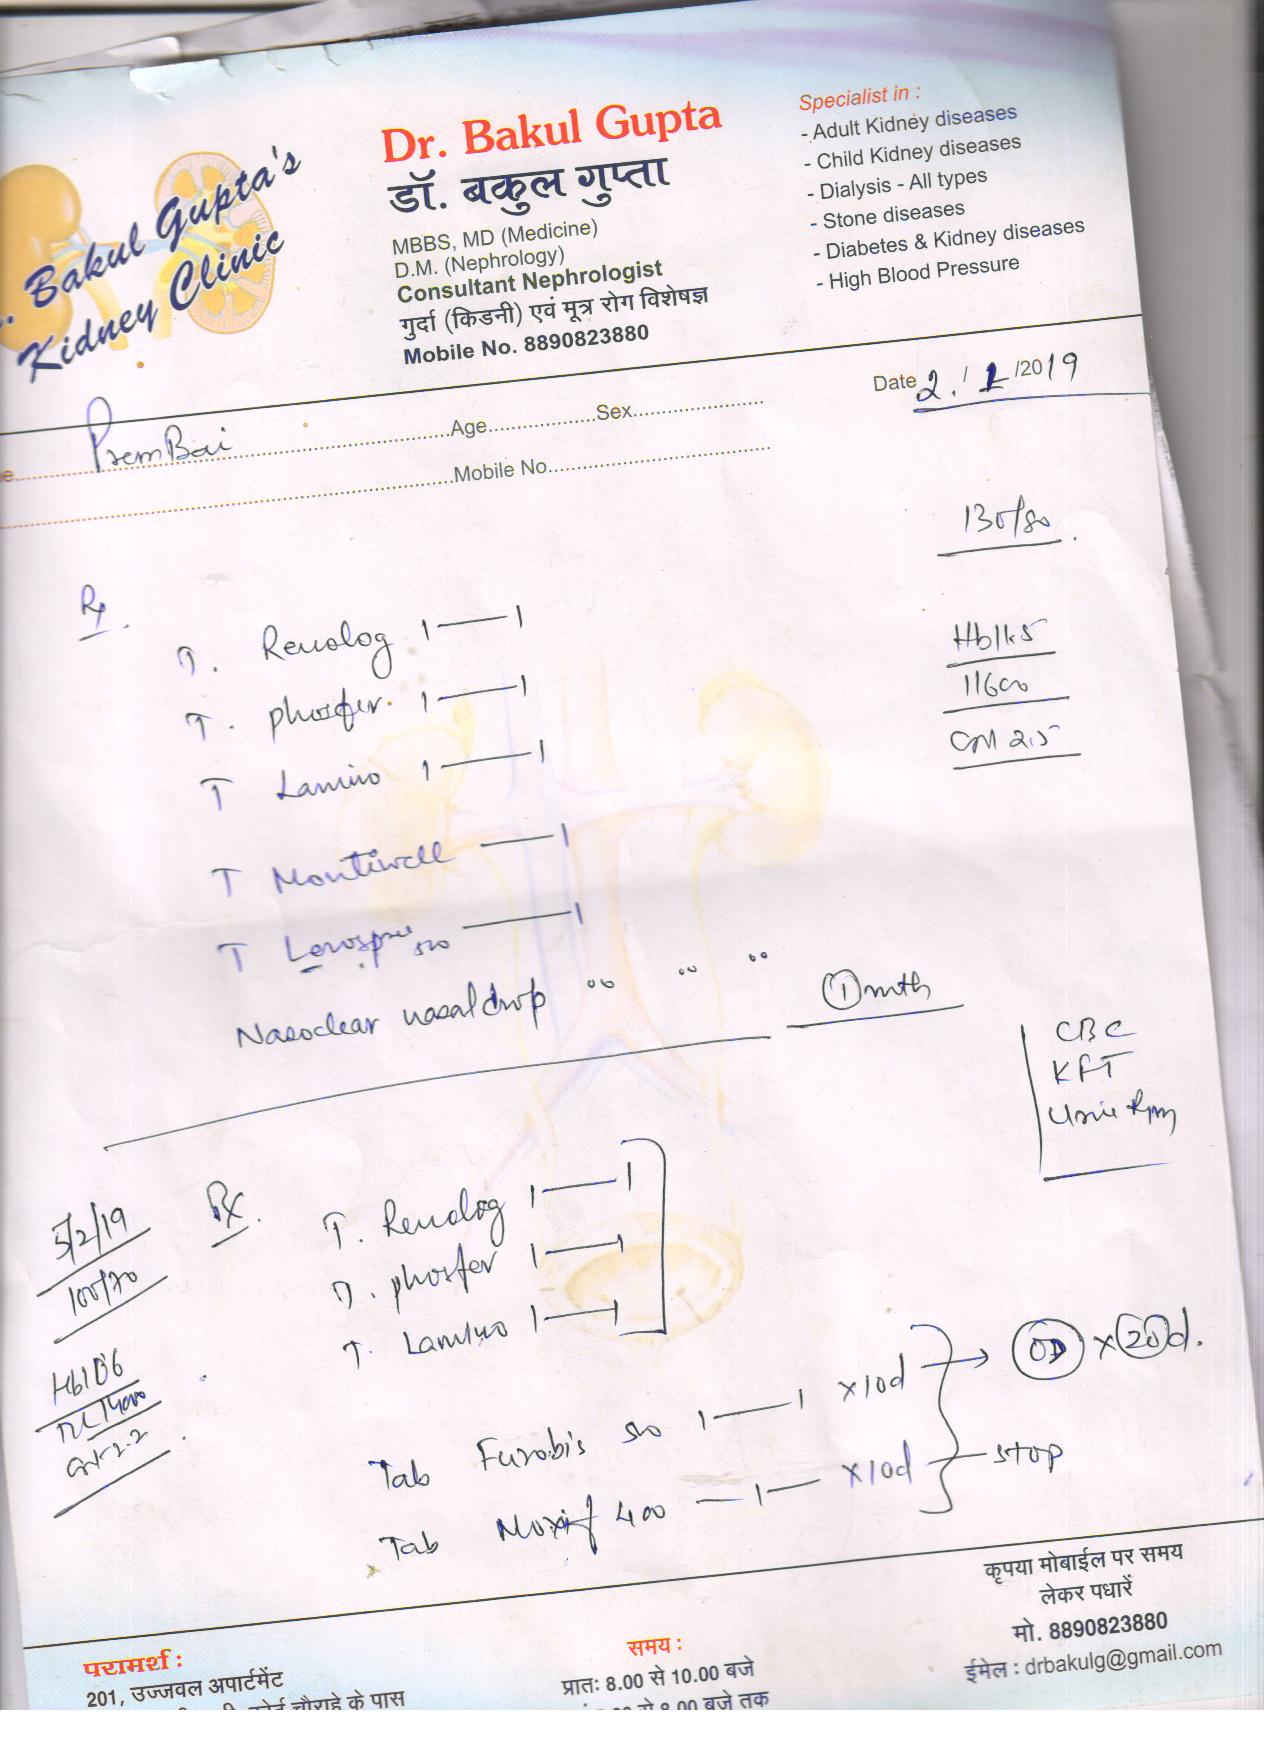 . Bakul Gupta's
Kidney Clinic
Dr. Bakul Gupta
डॉ. बकुल गुप्ता
MBBS, MD (Medicine)
D.M. (Nephrology)
Consultant Nephrologist
गुर्दा (किडनी) एवं मूत्र रोग विशेषज्ञ
Mobile No. 8890823880
Specialist in :
- Adult Kidney diseases
- Child Kidney diseases
- Dialysis - All types
- Stone diseases
- Diabetes & Kidney diseases
- High Blood Pressure
Date 2./1/2019
Prem Bai Age Sex
Mobile No.
130/80
Rx
T. Renolog 1—1
T. phosfer 1—1
T Lamino 1—1
T Montiwell —1
T —1
Nasoclear nasal drop
1 mth
11600
2.5
CBC
KFT
Urine
5/2/19
100/70
Hb 10.6
2.2
Rx
T. Renolog 1—1
T. phosfer 1—1
T. Lamino 1—1
Tab Furobis 500 1—1 x10d → OD x 20d.
Tab Moxif 400 —1— x10d — stop
परामर्श :
201, उज्जवल अपार्टमेंट
चौराहे के पास
समय :
प्रातः 8.00 से 10.00 बजे
से 8.00 बजे तक
कृपया मोबाईल पर समय
लेकर पधारें
मो. 8890823880
ईमेल : drbakulg@gmail.com